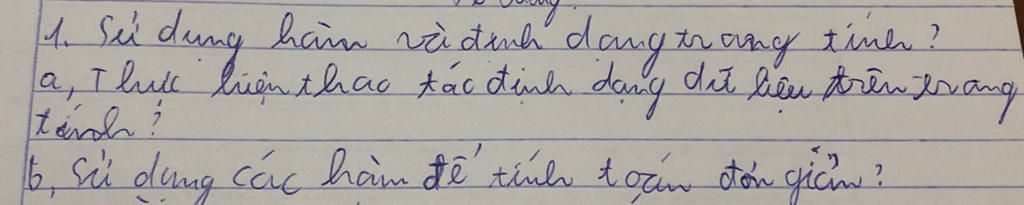 1. Sử dụng hàm và định dạng trang tính?
a, Thực hiện thao tác định dạng dữ liệu trên trang
tính?
b, Sử dụng các hàm để tính toán đơn giản?